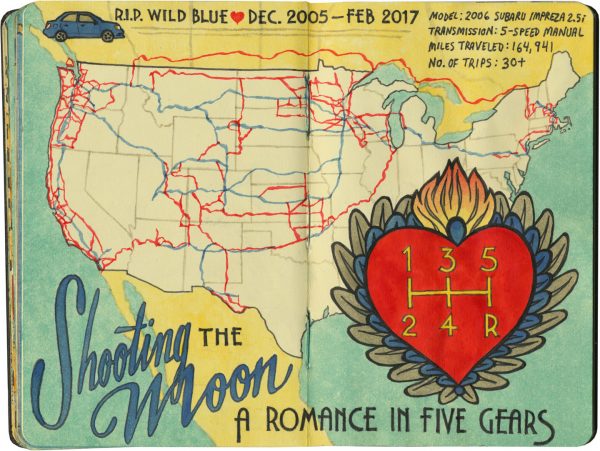 R.I.P. WILD BLUE ♥ DEC. 2005 — FEB 2017
MODEL: 2006 SUBARU IMPREZA 2.5i
TRANSMISSION: 5-SPEED MANUAL
MILES TRAVELED: 164,941
NO. OF TRIPS: 30+
1 3 5
2 4 R
Shooting THE
Moon
A ROMANCE IN FIVE GEARS